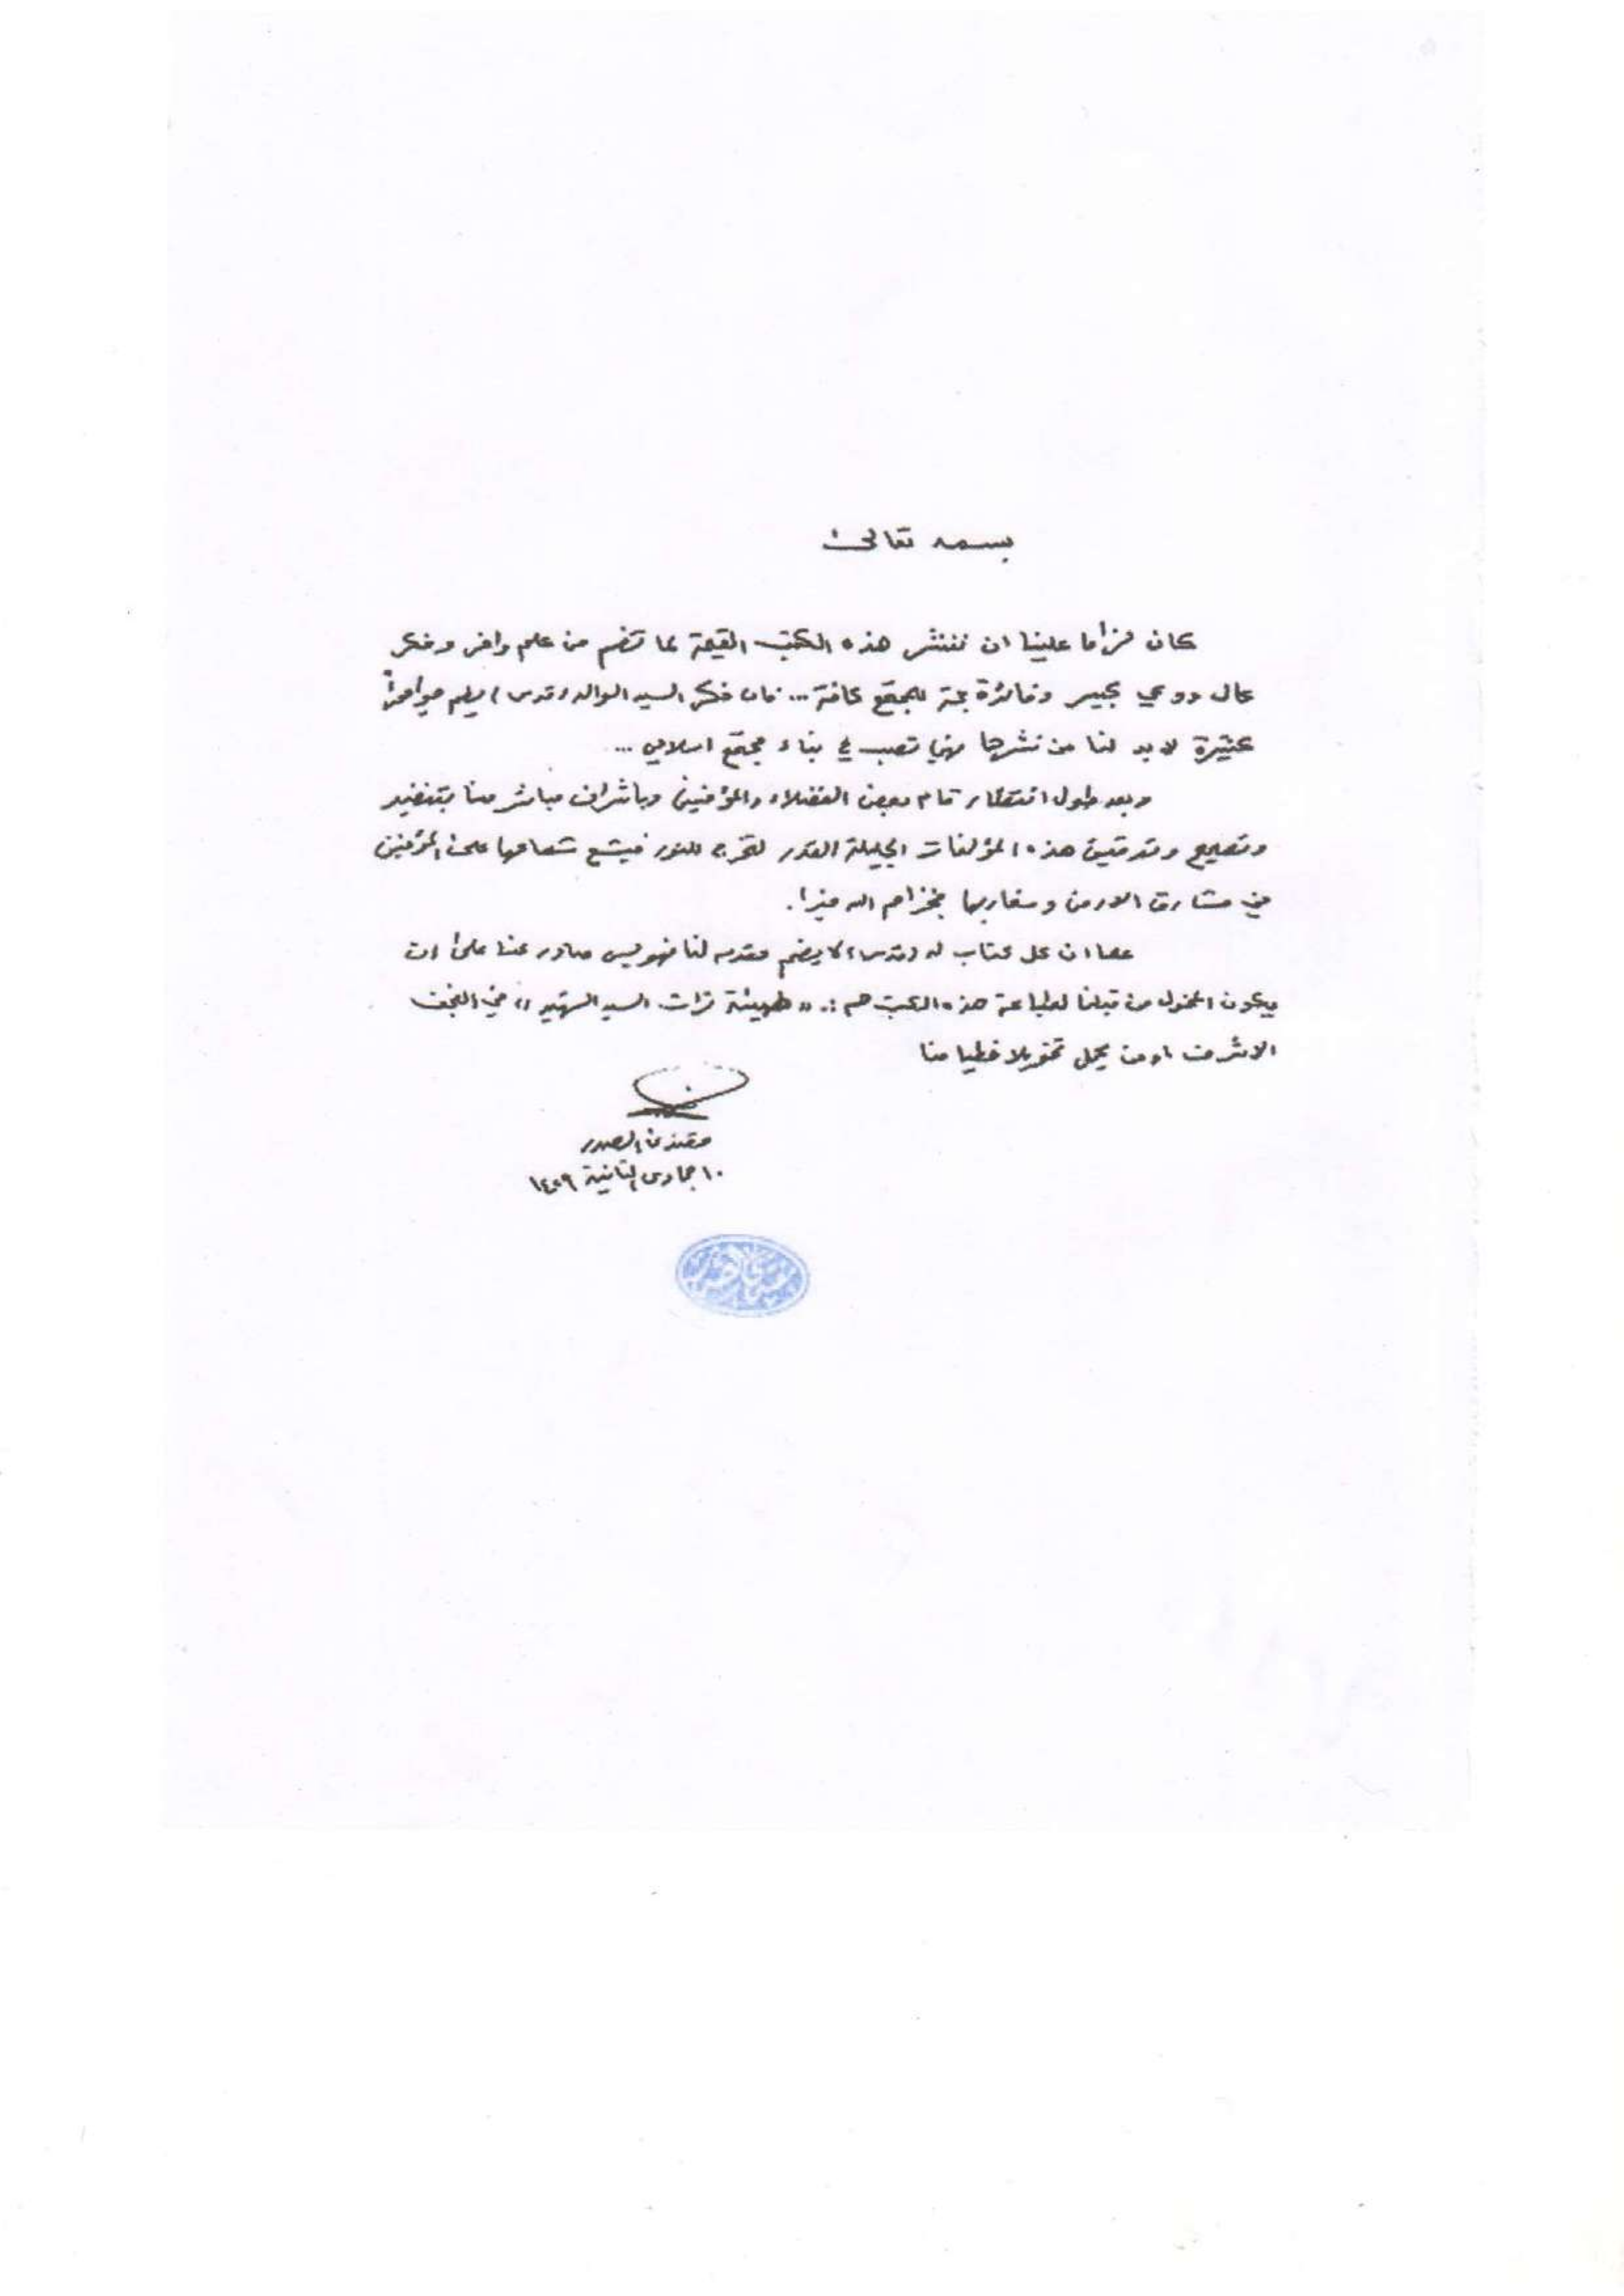 بسمه تعالى
كان لزاما علينا ان ننشر هذه الكتب القيمة لما تضم من علم وافر وفكر
عال ووعي كبير وفائدة جمة للمجتمع كافة ... فان فكر السيد الوالد (قدس)
كثيرة لابد لنا من نشرها فهي تصب في بناء مجتمع اسلامي ...
وبعد طول انتظار قام بعض الفضلاء والمؤمنين وباشراف مباشر منا بتنضيد
وتصحيح وتدقيق هذه المؤلفات الجليلة القدر لتخرج للنور فيشع شعاعها على المؤمنين
في مشارق الارض ومغاربها فجزاهم الله خيرا.
كما ان كل كتاب له (قدس) لا يضم مقدمه لنا فهو ليس صادر عنا على ان
يكون المخول من قبلنا لطباعة هذه الكتب هم :. «هيئة تراث السيد الشهيد» في النجف
الاشرف او من يحمل تخويلا خطيا منا
مقتدى الصدر
١٠ جمادى الثانية ١٤٢٩